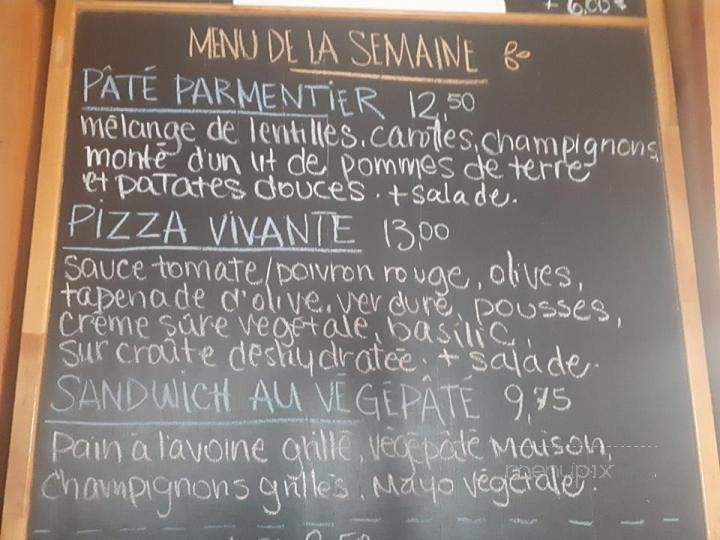 + 6,00$
MENU DE LA SEMAINE
PÂTÉ PARMENTIER 12,50
mélange de lentilles, carottes, champignons,
monté d'un lit de pommes de terre
et patates douces. + salade.
PIZZA VIVANTE 13,00
sauce tomate/poivron rouge, olives,
tapenade d'olive, verdure, pousses,
crème sûre végétale, basilic,
sur croûte déshydratée. + salade.
SANDWICH AU VÉGÉPÂTÉ 9,75
Pain à l'avoine grillé, végépâté Maison,
champignons grillés, Mayo végétale.
menupix